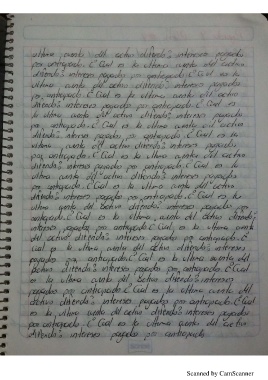 ultima cuenta del activo diferido? intereses pagados
por anticipado ¿Cual es la ultima cuenta del activo
diferido? intereses pagados por anticipado ¿Cual es la
ultima cuenta del activo diferido? intereses pagados
por anticipado ¿Cual es la ultima cuenta del activo
diferido? intereses pagados por anticipado ¿Cual es la
ultima cuenta del activo diferido? intereses pagados
por anticipado ¿Cual es la ultima cuenta del activo
diferido? intereses pagados por anticipado ¿Cual es la
ultima cuenta del activo diferido? intereses pagados
por anticipado ¿Cual es la ultima cuenta del activo
diferido? intereses pagados por anticipado ¿Cual es la
ultima cuenta del activo diferido? intereses pagados
por anticipado ¿Cual es la ultima cuenta del activo
diferido? intereses pagados por anticipado ¿Cual es la
ultima cuenta del activo diferido? intereses pagados por
anticipado ¿Cual es la ultima cuenta del activo diferido?
intereses pagados por anticipado ¿Cual es la ultima cuenta
del activo diferido? intereses pagados por anticipado ¿
cual es la ultima cuenta del activo diferido? intereses
pagados por anticipado ¿Cual es la ultima cuenta del
activo diferido? intereses pagados por anticipado ¿Cual
es la ultima cuenta del activo diferido? intereses
pagados por anticipado ¿Cual es la ultima cuenta del
activo diferido? intereses pagados por anticipado ¿Cual
es la ultima cuenta del activo diferido? intereses pagados
por anticipado ¿Cual es la ultima cuenta del activo
diferido? intereses pagados por anticipado
Scanned by CamScanner